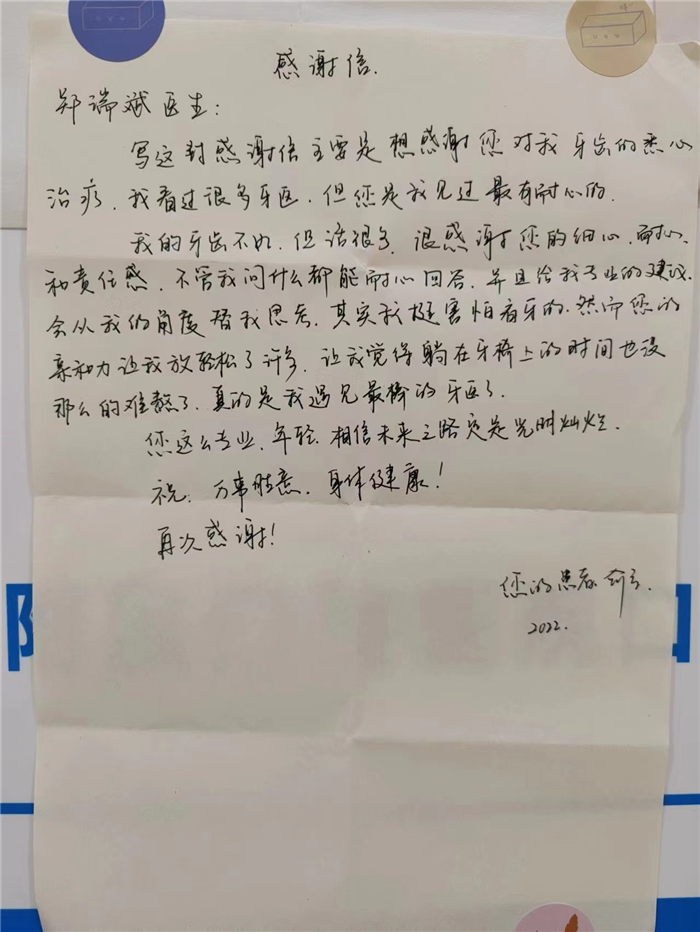 感谢信.
郑瑞斌医生:
写这封感谢信主要是想感谢您对我牙齿的悉心
治疗.我看过很多牙医.但您是我见过最有耐心的.
我的牙齿不好.但话很多.很感谢您的细心.耐心.
和责任感.不管我问什么都能耐心回答.并且给我专业的建议.
会从我的角度替我思考.其实我挺害怕看牙的.然而您的
亲和力让我放轻松了许多.让我觉得躺在牙椅上的时间也没
那么的难熬了.真的是我遇见最棒的牙医了.
您这么专业.年轻.相信未来之路定是光明灿烂.
祝:万事胜意.身体健康!
再次感谢!
您的患者
2022.